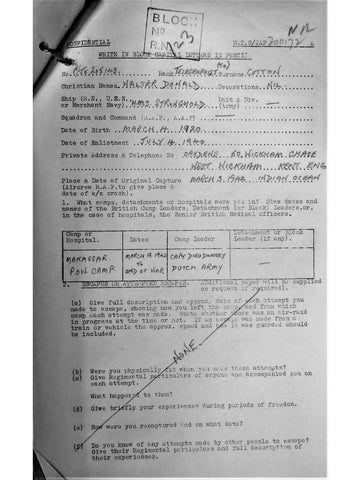 BLOCK
No
R.N. 23
CONFIDENTIAL
M.I.9/JAP/
WRITE IN BLOCK CAPITAL LETTERS IN PENCIL
No. Rank TELEGRAPHIST Surname COTTON
Christian Names. WALTER DONALD. Decorations. NIL
Ship (R.N., U.S.N. or Merchant Navy) HMS. STRONGHOLD. Unit & Div. —
Squadron and Command (R.A.F., A.A.F) —
Date of Birth MARCH 4 1920
Date of Enlistment JULY 4 1940
Private Address & Telephone No OAKDENE, 50, WICKHAM CHASE
WEST WICKHAM KENT. ENG
Place & Date of Original Capture MARCH 2 1942 INDIAN OCEAN
(Aircrew R.A.F. to give place &
date of a/c crash).
1. What camps, detachments or hospitals were you in? Give dates and
names of the British Camp Leaders, Detachment (or Block) Leaders, or,
in the case of hospitals, the Senior British Medical Officers.
Camp or Hospital. Dates Camp Leader Detachment or Block Leader (if any).
MAKASSAR MARCH 9 1942 CAPT
POW CAMP. TO END OF WAR DUTCH ARMY —
2. ESCAPES OR ATTEMPTED ESCAPES. (Additional paper will be supplied
on request if required).
(a) Give full description and approx. date of each attempt you
made to escape, showing how you left the camp and from which
camp each attempt was made. State whether there was an air-raid
in progress at the time or not. If an escape was made from a
train or vehicle the approx. speed and how it was guarded should
be included.
NONE.
(b) Were you physically fit when you made these attempts?
(c) Give Regimental particulars of anyone who accompanied you on
each attempt.
What happened to them?
(d) Give briefly your experiences during periods of freedom.
(e) How were you recaptured and on what date?
(f) Do you know of any attempts made by other people to escape?
Give their Regimental particulars and full description of
their experiences.